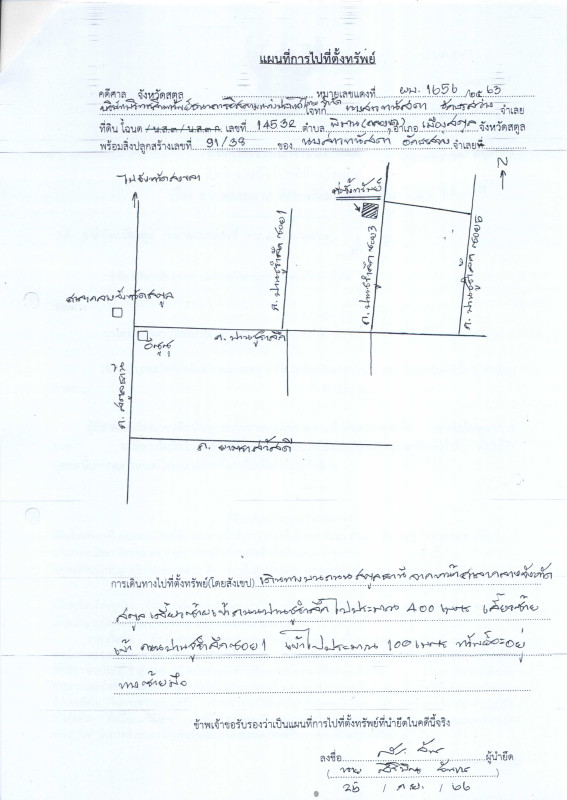 แผนที่การไปที่ตั้งทรัพย์
คดีศาล จังหวัดสตูล หมายเลขแดงที่ ผบ. 1656 /2563
โจทก์ นางสาว จำเลย
ที่ดิน โฉนด / น.ส.๓ / น.ส.๓ ก. เลขที่ 14532 ตำบล พิมาน อำเภอ เมืองสตูล จังหวัดสตูล
พร้อมสิ่งปลูกสร้างเลขที่ 91/38 ของ นางสาว จำเลยที่
ไปจังหวัดสงขลา
N
ที่ตั้งทรัพย์
ถ. ปานชูรำลึก ซอย 1
ถ. ปานชูรำลึก ซอย 3
ถ. ปานชูรำลึก ซอย 5
ศาลากลางจังหวัดสตูล
ถ. ปานชูรำลึก
ถ. สตูลธานี
ถ. ยาตราสวัสดี
การเดินทางไปที่ตั้งทรัพย์(โดยสังเขป) เดินทางบนถนนสตูลธานี จากหน้าศาลากลางจังหวัด
สตูล เลี้ยวซ้ายเข้าถนนปานชูรำลึก ไปประมาณ 400 เมตร เลี้ยวซ้าย
เข้า ถนนปานชูรำลึก ซอย 1 เข้าไปประมาณ 100 เมตร ทรัพย์จะอยู่
ทางซ้ายมือ
ข้าพเจ้าขอรับรองว่าเป็นแผนที่การไปที่ตั้งทรัพย์ที่นำยึดในคดีนี้จริง
ลงชื่อ ผู้นำยึด
( นาย )
25 / ก.ย. / 66